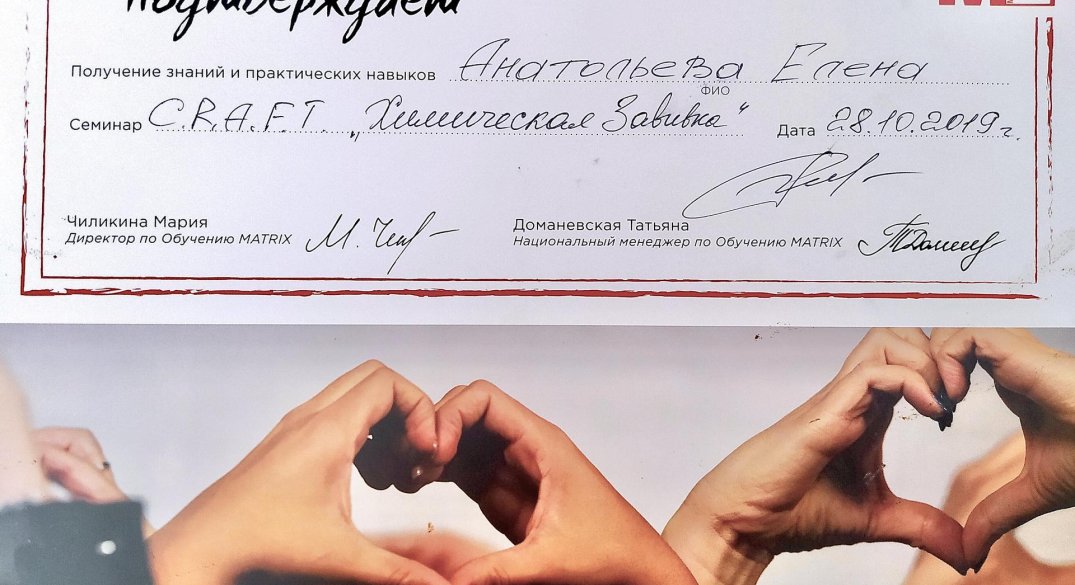 подтверждает
Получение знаний и практических навыков Анатольева Елена
ФИО
Семинар C.R.A.F.T. „Химическая Завивка" Дата 28.10.2019г.
Чиликина Мария
Директор по Обучению MATRIX
Доманевская Татьяна
Национальный менеджер по Обучению MATRIX